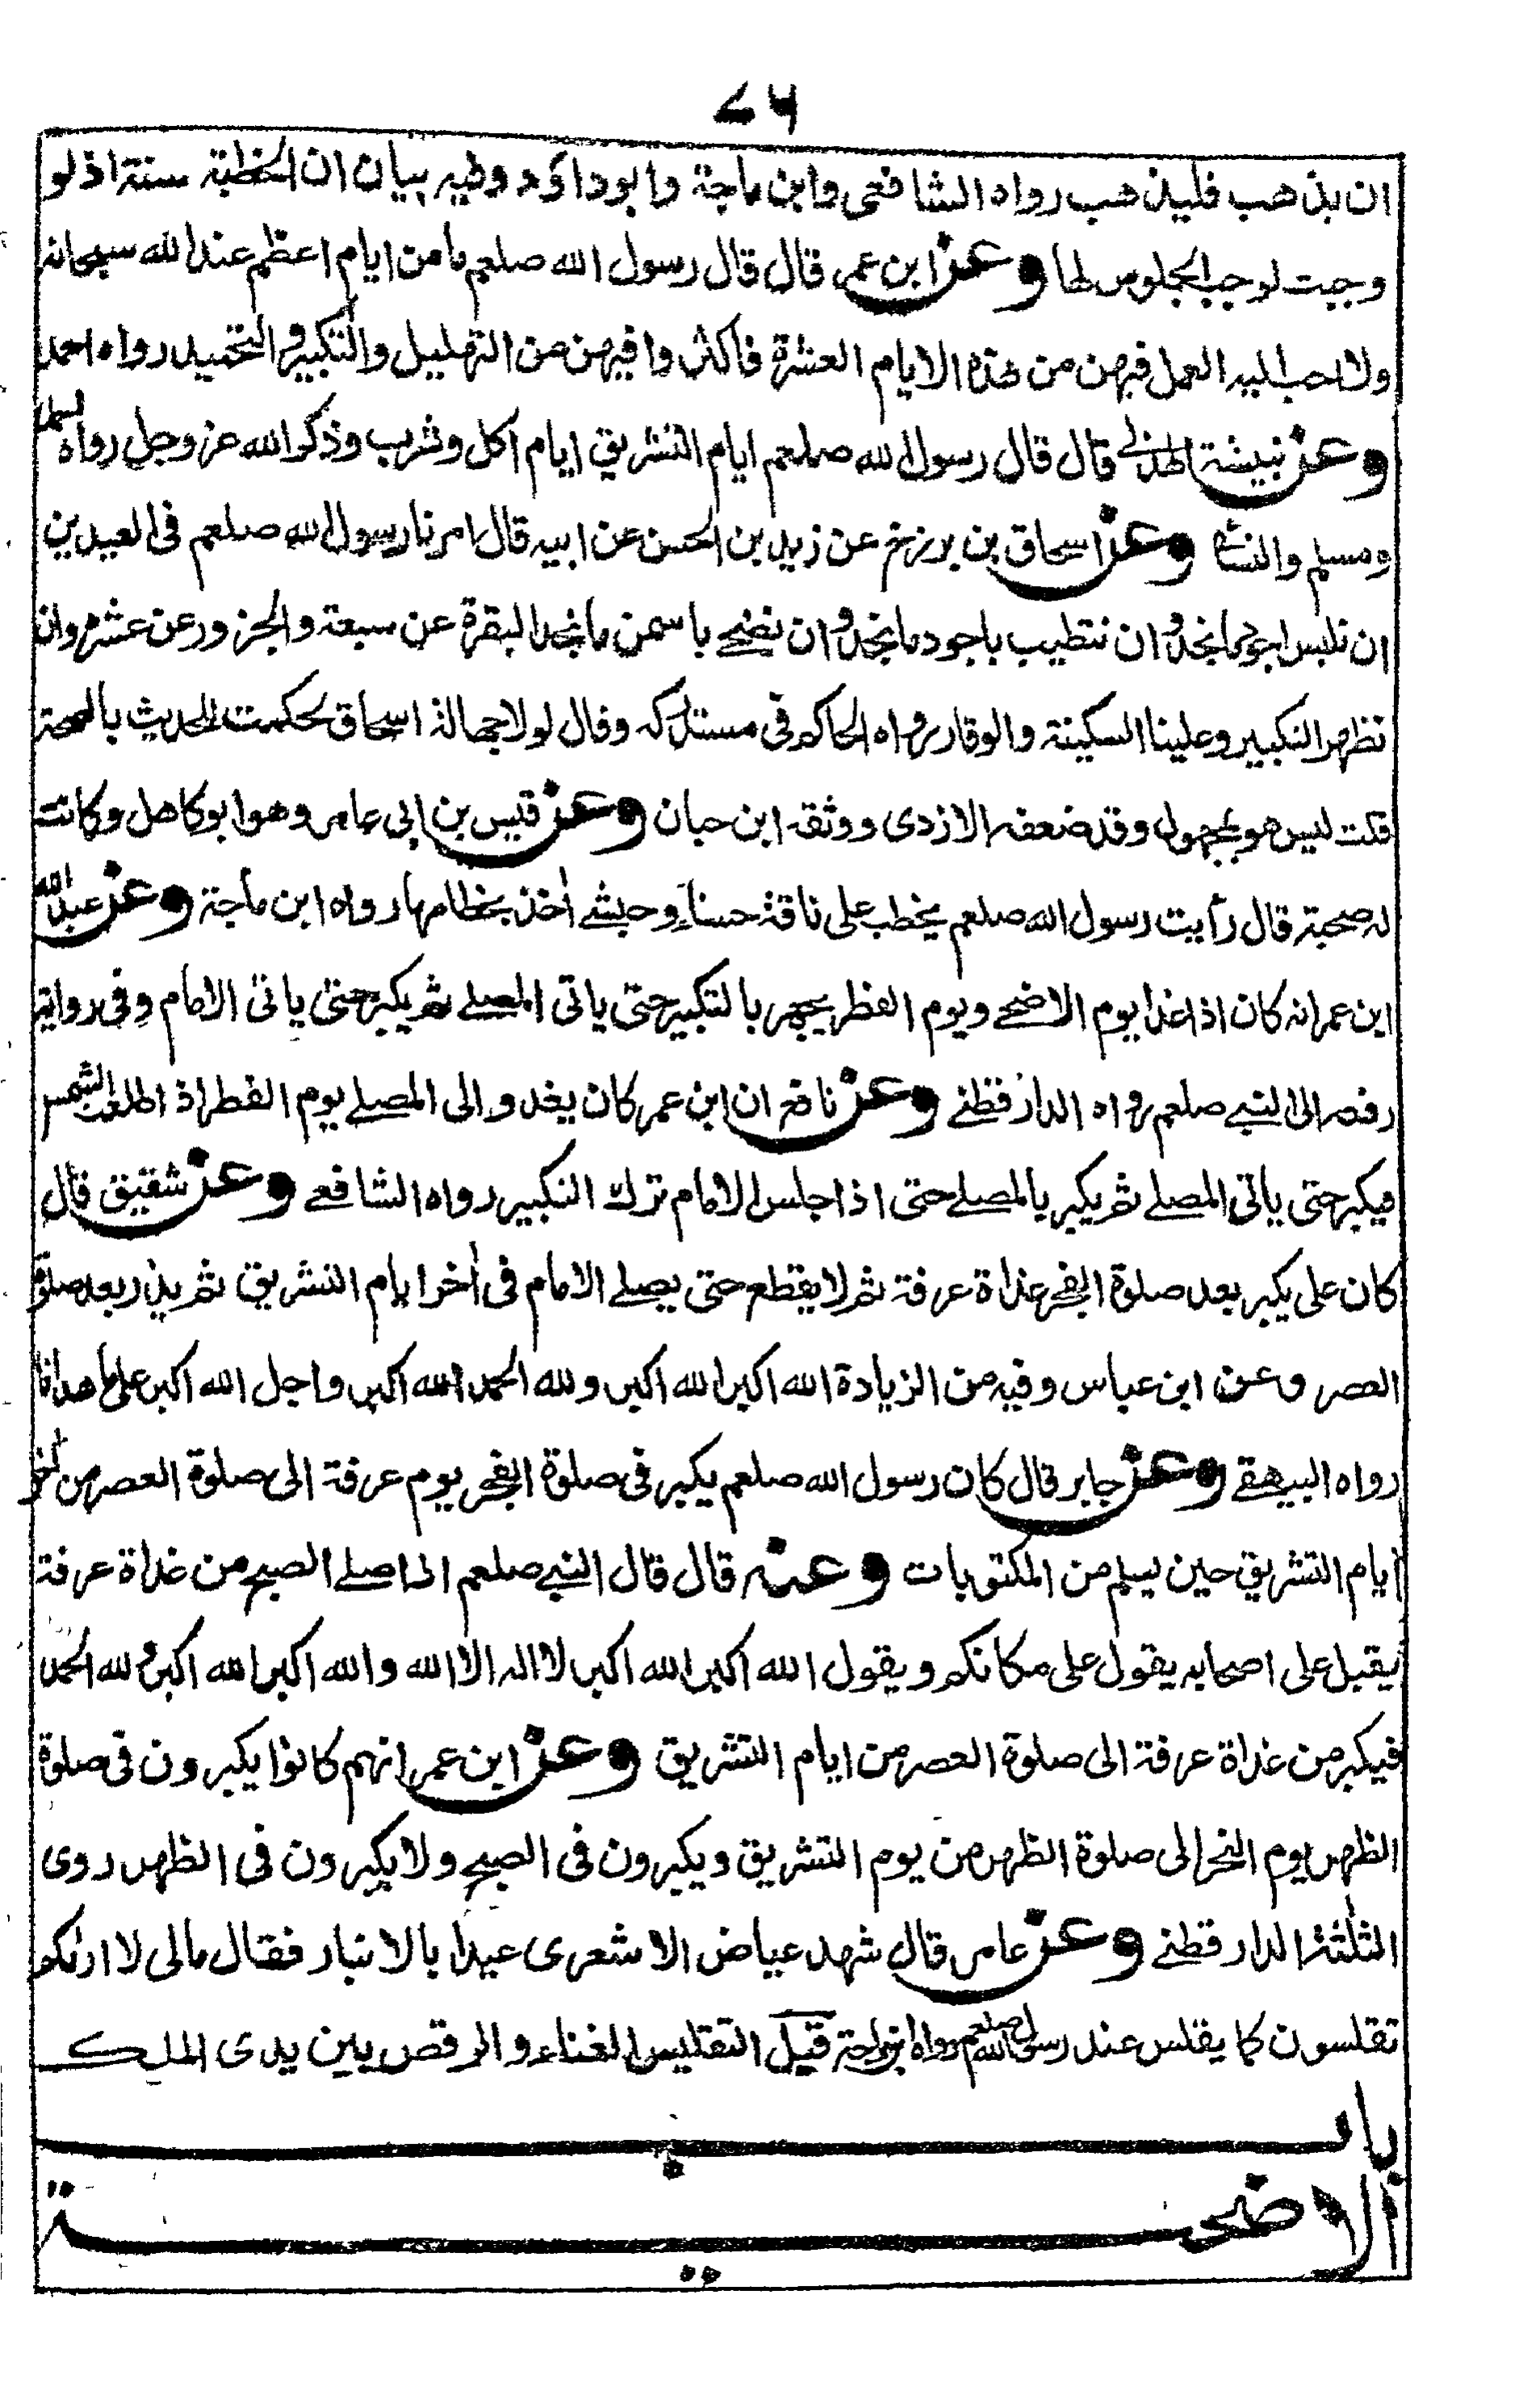 ٧٦
ان يذهب فليذهب رواه الشافعى وابن ماجة وابوداؤد وفيه بيان ان الخطبة سنة اذ لو
وجبت لوجب الجلوس لها وعن ابن عمر قال قال رسول الله صلعم ما من ايام اعظم عند الله سبحانه
ولا احب اليه العمل فيهن من هذه الايام العشرة فاكثروا فيهن من التهليل والتكبير والتحميد رواه احمد
وعن نبيشة الهذلى قال قال رسول الله صلعم ايام التشريق ايام اكل وشرب وذكر الله عز وجل رواه
ومسلم والنسائى وعن اسحاق بن برزخ عن زيد بن الحسن عن ابيه قال امرنا رسول الله صلعم فى العيدين
ان نلبس اجود ما نجد وان نتطيب باجود ما نجد وان نضحے باسمن ما نجد البقرة عن سبعة والجزور عن عشرة وان
نظهر التكبير وعلينا السكينة والوقار رواه الحاكم فى مستدركه وقال لولا جهالة اسحاق لحكمت للحديث بالصحة
قلت ليس هو بمجهول وقد ضعفه الازدى ووثقه ابن حبان وعن قيس بن ابى عامر وهو ابو كاهل وكانت
له صحبة قال رأيت رسول الله صلعم يخطب على ناقة حسناء وحبشے اٰخذ بخطامها رواه ابن ماجة وعن عبد الله
ابن عمر انه كان اذا غدا يوم الاضحے ويوم الفطر يجهر بالتكبير حتى ياتى المصلے ثم يكبر حتى ياتى الامام وفى رواية
رفعه الى النبے صلعم رواه الدارقطنے وعن نافع ان ابن عمر كان يغدو الى المصلے يوم الفطر اذ اطلعت الشمس
فيكبر حتى ياتى المصلے ثم يكبر بالمصلے حتى اذا جلس الامام ترك التكبير رواه الشافعے وعن شقيق قال
كان على يكبر بعد صلوة الفجر غداة عرفة ثم لا يقطع حتى يصلے الامام فى اٰخر ايام التشريق ثم يكبر بعد صلوة
العصر وعن ابن عباس وفيه من الزيادة الله اكبر الله اكبر ولله الحمد الله اكبر واجل الله اكبر على ما هدانا
رواه البيهقے وعن جابر قال كان رسول الله صلعم يكبر فى صلوة الفجر يوم عرفة الى صلوة العصر من اٰخر
ايام التشريق حين يسلم من المكتوبات وعنه قال قال النبے صلعم اذا صلے الصبح من غداة عرفة
يقبل على اصحابه يقول على مكانكم ويقول الله اكبر الله اكبر لا اله الا الله والله اكبر الله اكبر ولله الحمد
فيكبر من غداة عرفة الى صلوة العصر من ايام التشريق وعن ابن عمر انهم كانوا يكبرون فى صلوة
الظهر يوم النحر الى صلوة الظهر من يوم التشريق ويكبرون فى الصبح ولا يكبرون فى الظهر روى
الثلٰثة الدارقطنے وعن عامر قال شهد عياض الاشعرى عيدا بالانبار فقال مالى لا ارٰكم
تقلسون كما يقلس عند رسول الله صلعم رواه ابن ماجة قيل التقليس الغناء والرقص بين يدى الملك
باب
الاضحية